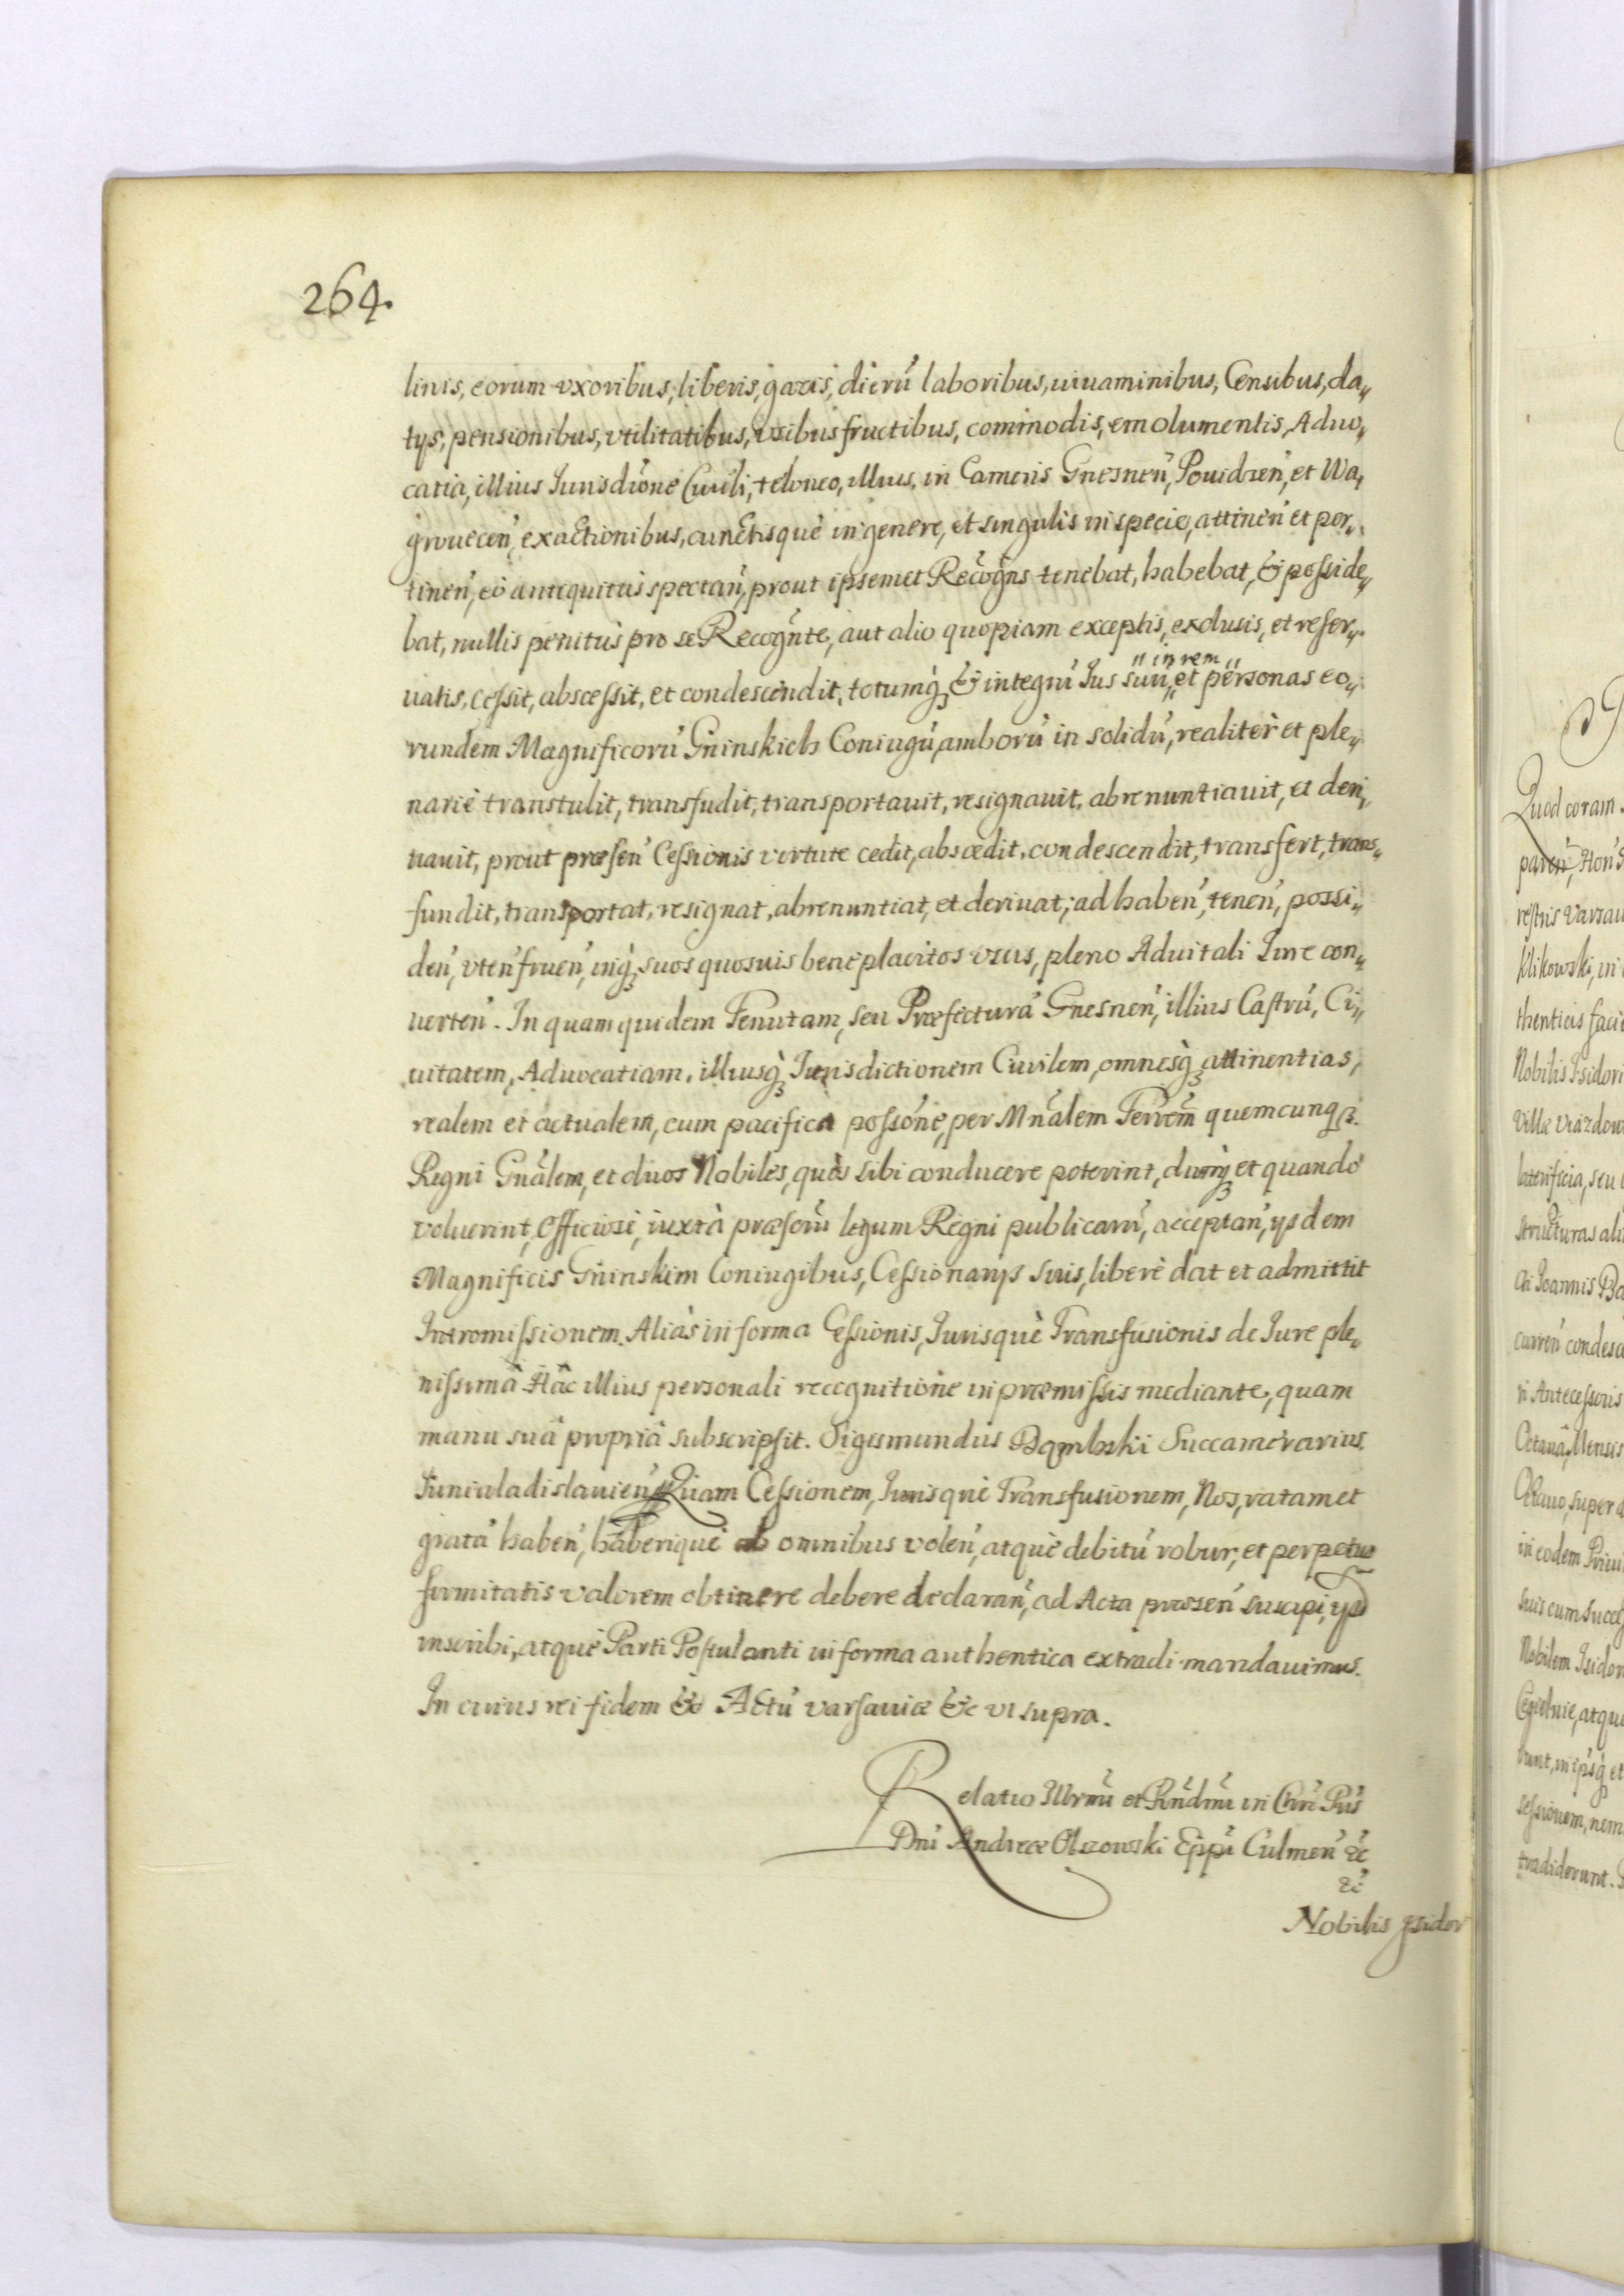 264.
linis, eorum vxoribus, liberis, gazis, dierū laboribus, iuuaminibus, Censibus, da„
tijs, pensionibus, vtilitatibus, vsibus fructibus, commodis, emolumentis, Aduo„
catia, illius Jurisdīone Ciuili, teloneo, illius, in Cameris Gnesneñ, Powidzeñ, et Wa„
groweceñ, exactionibus, cunctisquè in genere, et singulis in specie, attineñ et per„
tineñ, eò antiquitùs spectañ, prout ipsemet Recogñs tenebat, habebat, & posside„
bat, nullis penitùs pro se Recogñte, aut alio quopiam exceptis, exclusis, et reser„
uatis, cessit, abscessit, et condescendit, totumq̀ʒ & integrū Jus suū, „in rem„ et personas eo„
rundem Magnificorū Gninskich Coniugū, amborū in solidū, realitèr et ple„
nariè transtulit, transfudit, transportauit, resignauit, abrenuntiauit, et deri„
uauit, prout præseñ Cessionis virtute cedit, abscedit, condescendit, transfert, trans„
fundit, transportat, resignat, abrenuntiat, et deriuat, ad habeñ, teneñ, possi„
deñ, vteñ frueñ, inq̀ʒ suos quosuis beneplacitos vsus, pleno Aduitali Jure con„
uerteñ. In quam quidem Tenutam, seu Præfecturā Gnesneñ, illius Castrū, Ci„
uitatem, Aduocatiam, illiusq̀ʒ Jurisdictionem Ciuilem, omnesq̀ʒ attinentias,
realem et actualem, cum pacifica possōne, per Mñalem Terrem̃ quemcunqʒ
Regni Gñalem, et duos Nobiles, quos sibi conducere poterint, dumq̀ʒ et quandò
voluerint, Officiosè, iuxtà præsorū legum Regni publicarū, acceptañ, ijsdem
Magnificis Gninskim Coniugibus, Cessionarijs suis, liberè dat et admittit
Intromissionem. Aliàs in forma Cessionis, Jurisquè Transfusionis de Jure ple„
nissimâ Hâc illius personali recognitione in præmissis mediante, quam
manu suâ propriâ subscripsit. Sigismundus Dąmbski Succamerarius
Juniuladislauieñ Quam Cessionem, Jurisquè Transfusionem, Nos, ratam et
gratā habeñ, haberiquè ab omnibus voleñ, atquè debitū robur, et perpetuæ
firmitatis valorem obtinere debere declarañ, ad Acta præseñ suscipi, ijsq̀ʒ
inscribi, atquè Parti Postulanti in forma authentica extradi mandauimus.
In cuius rei fidem &c Actū varsauiæ &c vt supra.
Relatio Illrm̃i et Rñdmi in Chrō Pris
Dñi Andreæ Olszowski Epp̃i Culmeñ &c
&c
Nobilis Isidor
Quod coram
pareñ, Hon
restris Varsau
Klikowski, in
thenticis faci
Nobilis Isidori
Villæ Viazdow
laterificia, seu
structuras ali
Joannis
curreñ condes
Antecessoris
Octauâ, Mensis
super
in eodem Priui
suis cum succes
Nobilem Isidor
Cegielnie, atqu
sessionem, nem
tradiderunt.